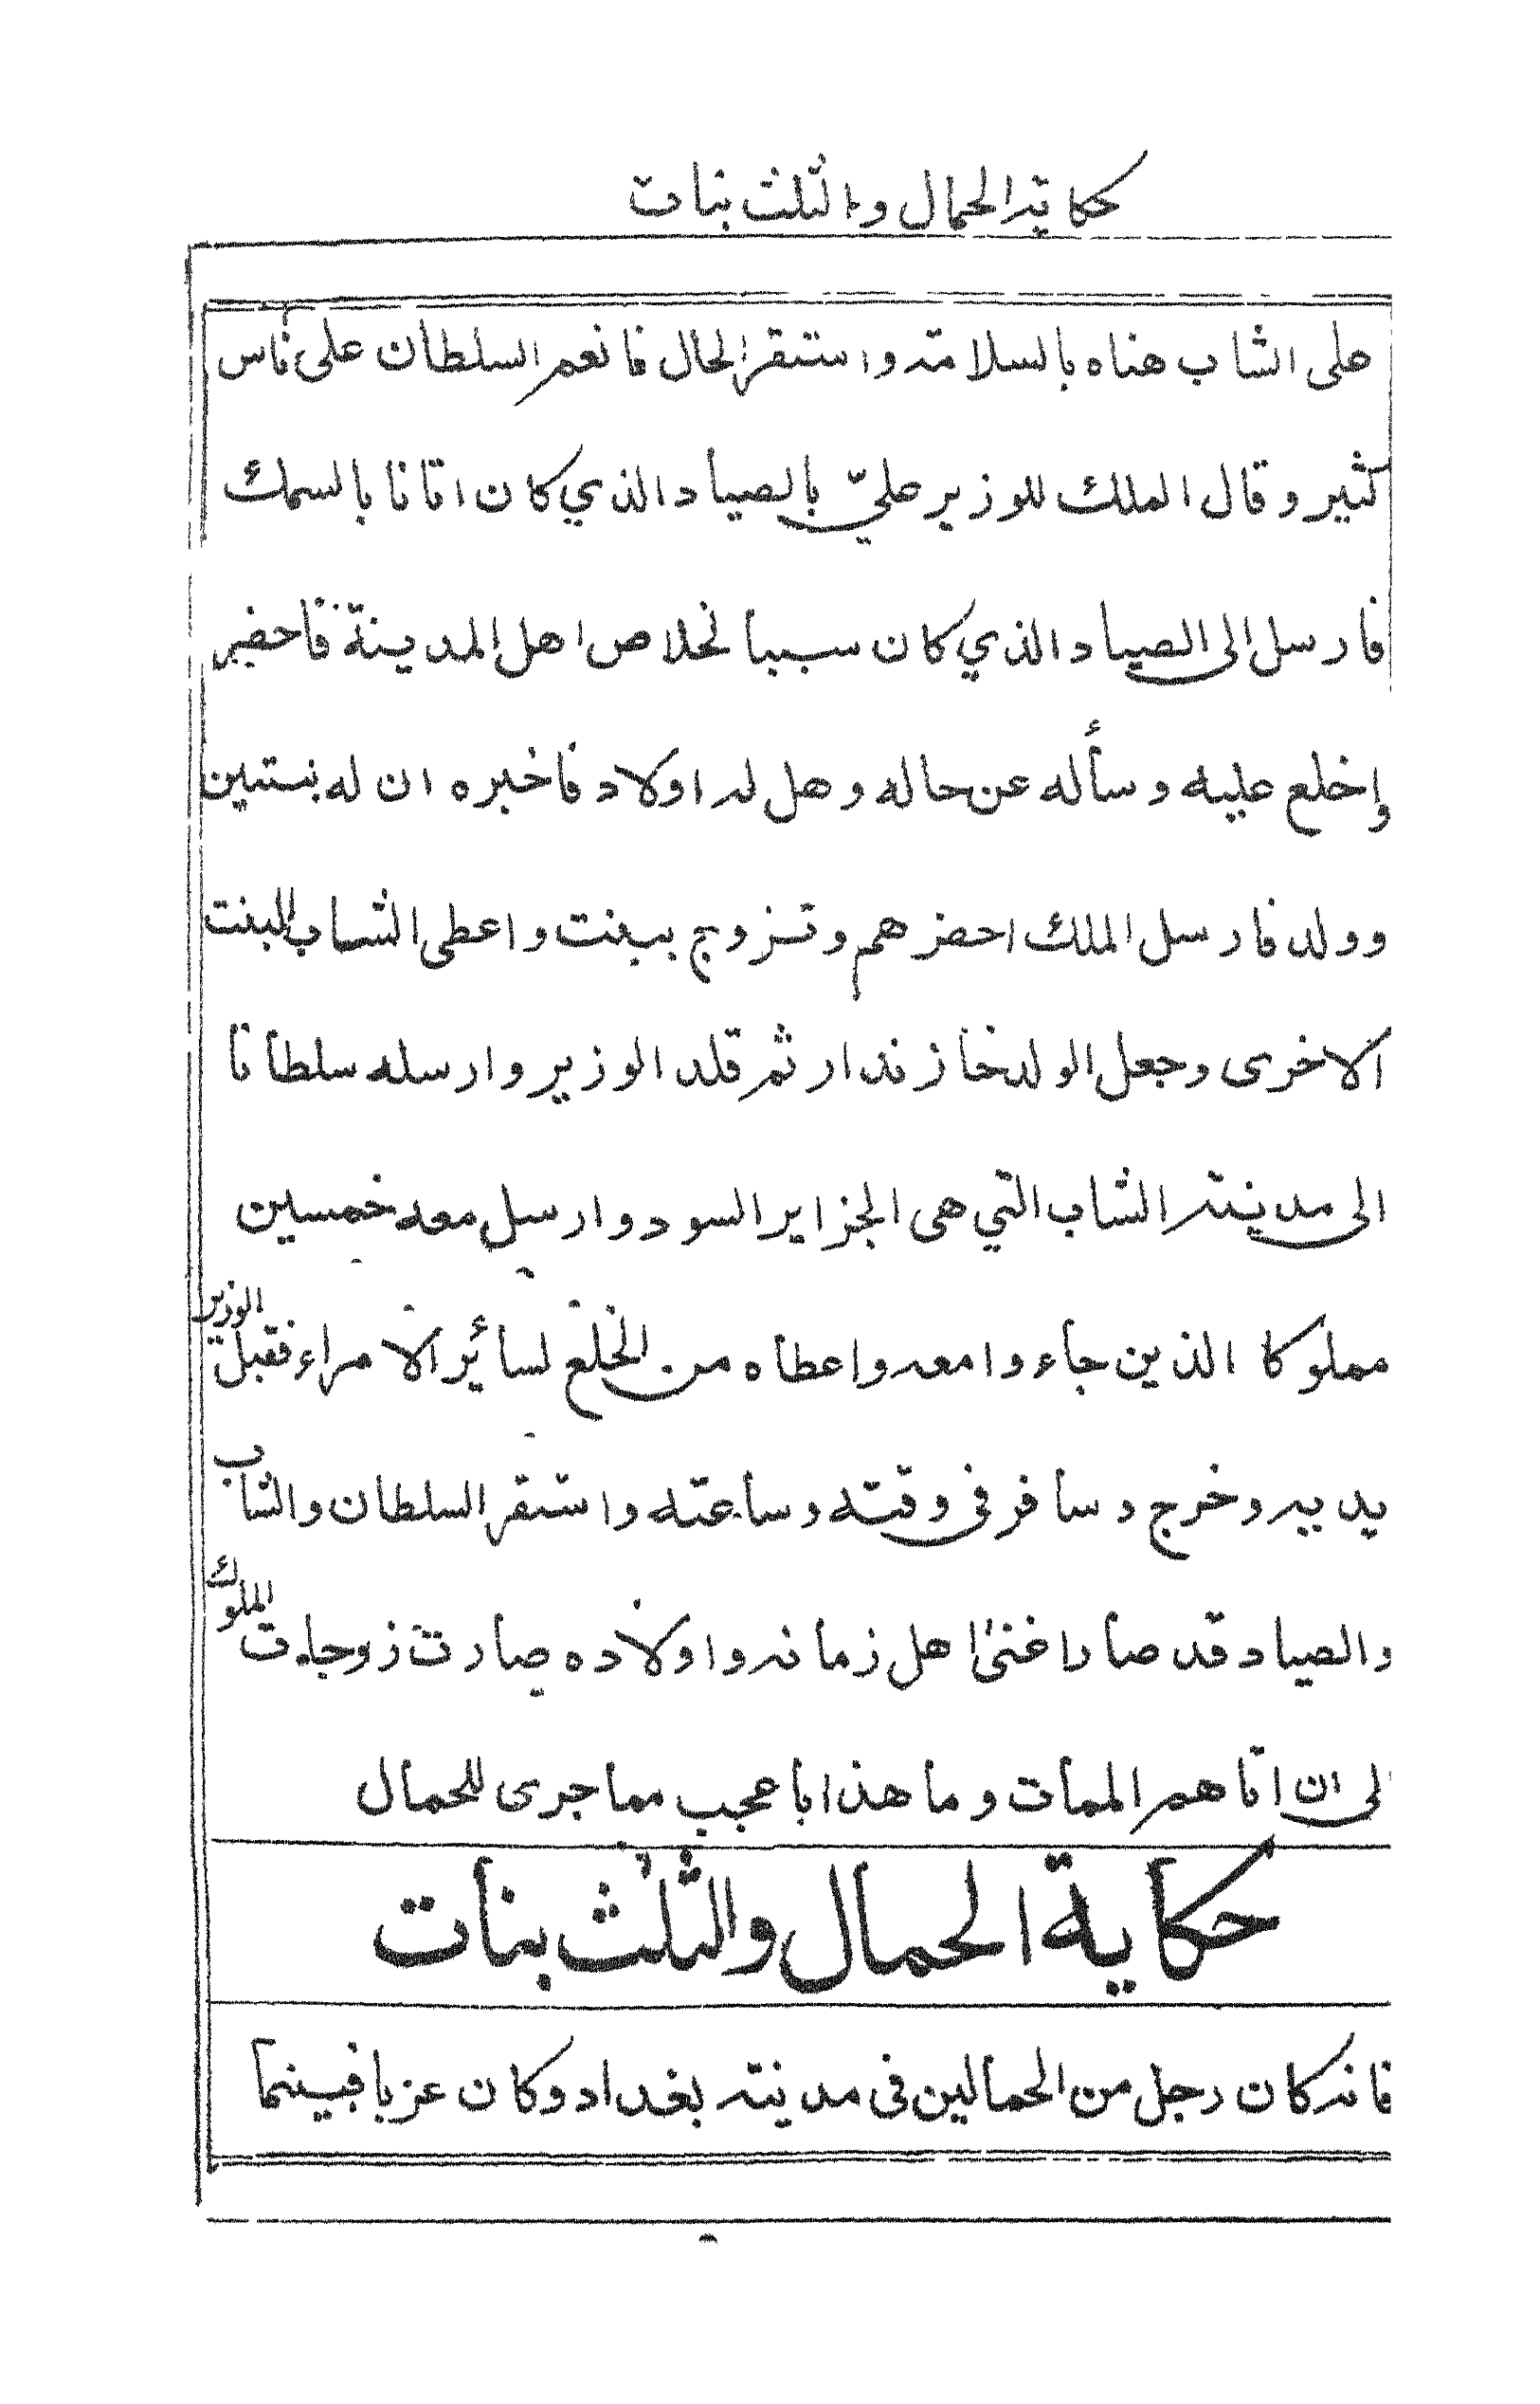 حكاية الحمال والثلث بنات
على الشاب هناه بالسلامة واستقر الحال فانعم السلطان على ناس
كثير وقال الملك للوزير عليّ بالصياد الذي كان اتانا بالسمك
فارسل الى الصياد الذي كان سببا لخلاص اهل المدينة فاحضر
وإخلع عليه وسأله عن حاله وهل له اولاد فاخبره ان له بنتين
وولد فارسل الملك احضرهم وتزوج ببنت واعطى الشاب البنت
الاخرى وجعل الولد خازندار ثم قلد الوزير وارسله سلطانا
الى مدينة الشاب التي هى الجزاير السود وارسل معه خمسين
مملوكا الذين جاءوا معه واعطاه من الخلع لسائر الامراء فقبل الوزير
يديه وخرج وسافر في وقته وساعته واستقر السلطان والشاب
والصياد قد صار اغنى اهل زمانه واولاده صارت زوجات الملوك
الى ان اتاهم الممات وما هذا باعجب مما جرى للحمال
حكاية الحمال والثلث بنات
فانه كان رجل من الحمالين فى مدينة بغداد وكان عزبا فبينما